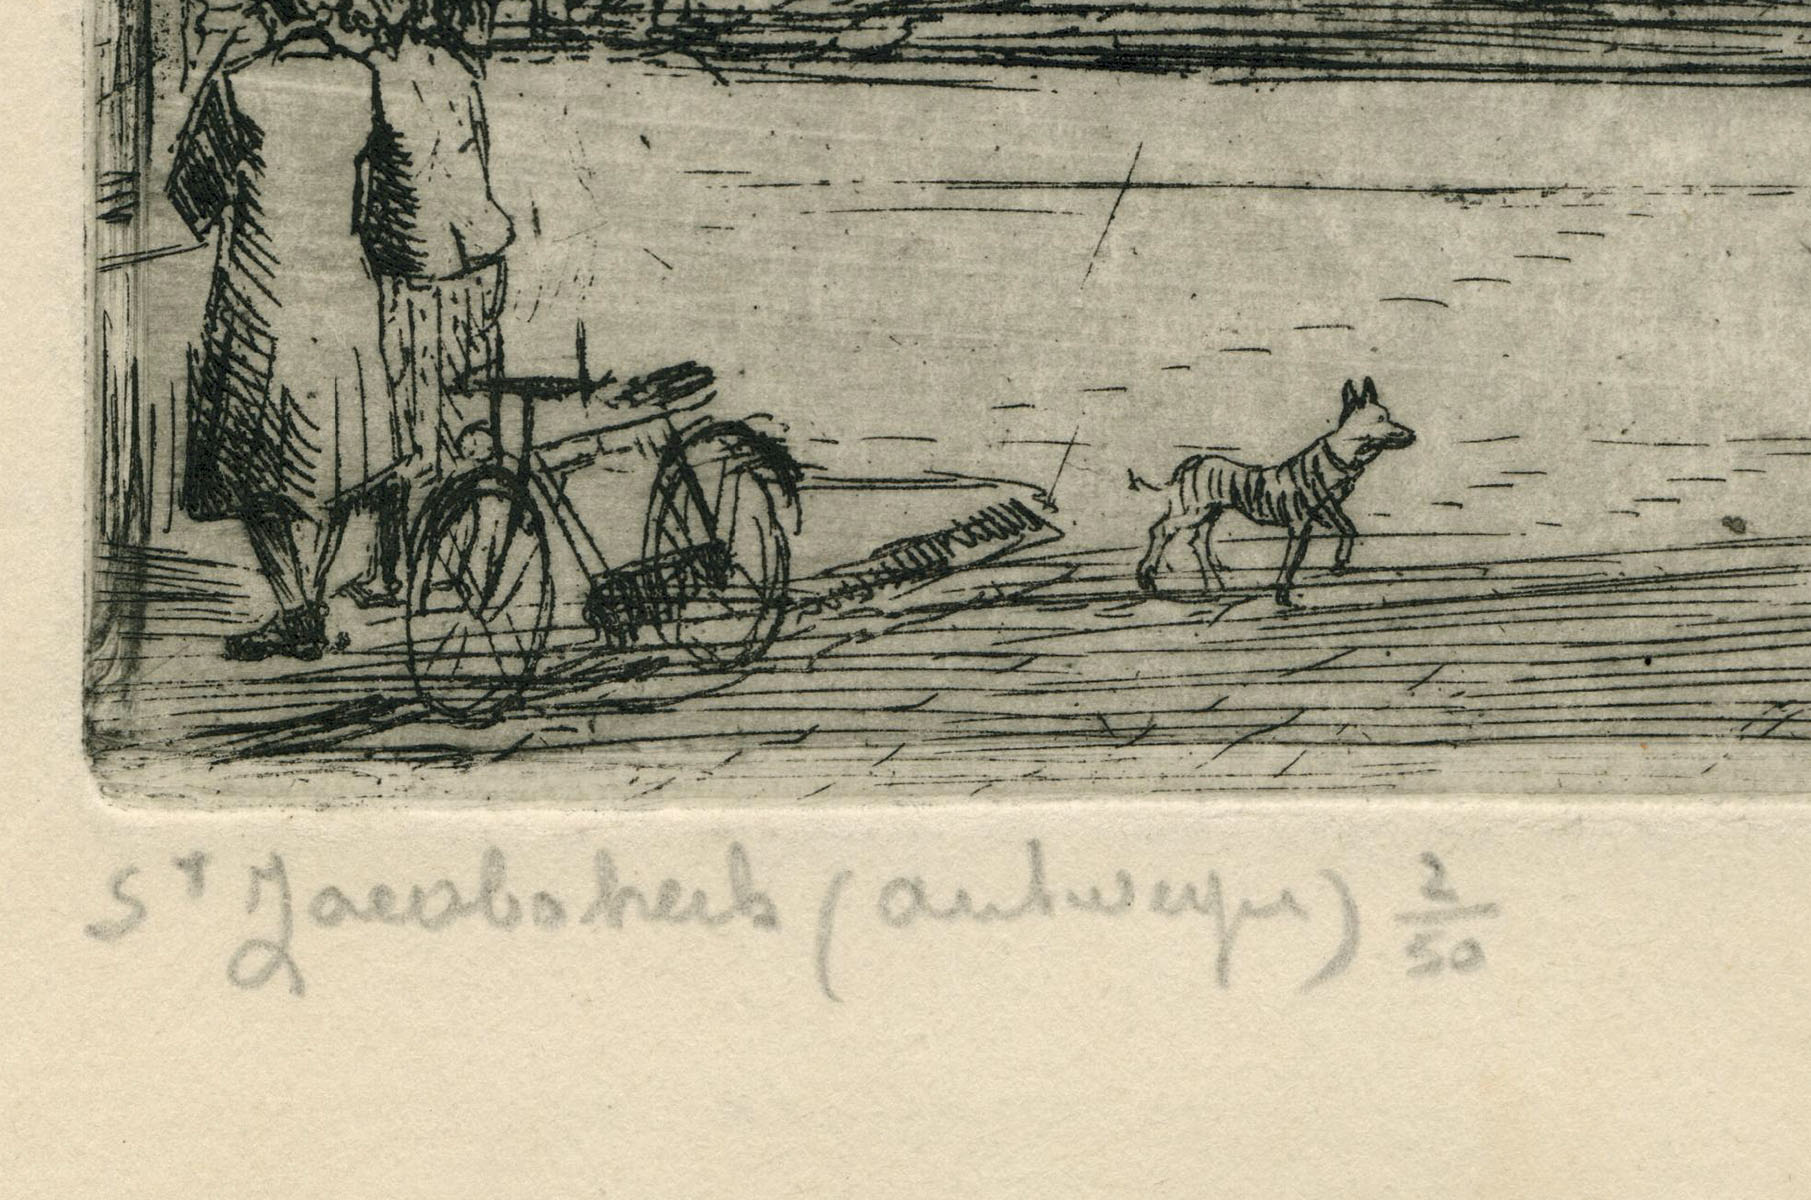 St Jacobskerk (Antwerpen) 2/50